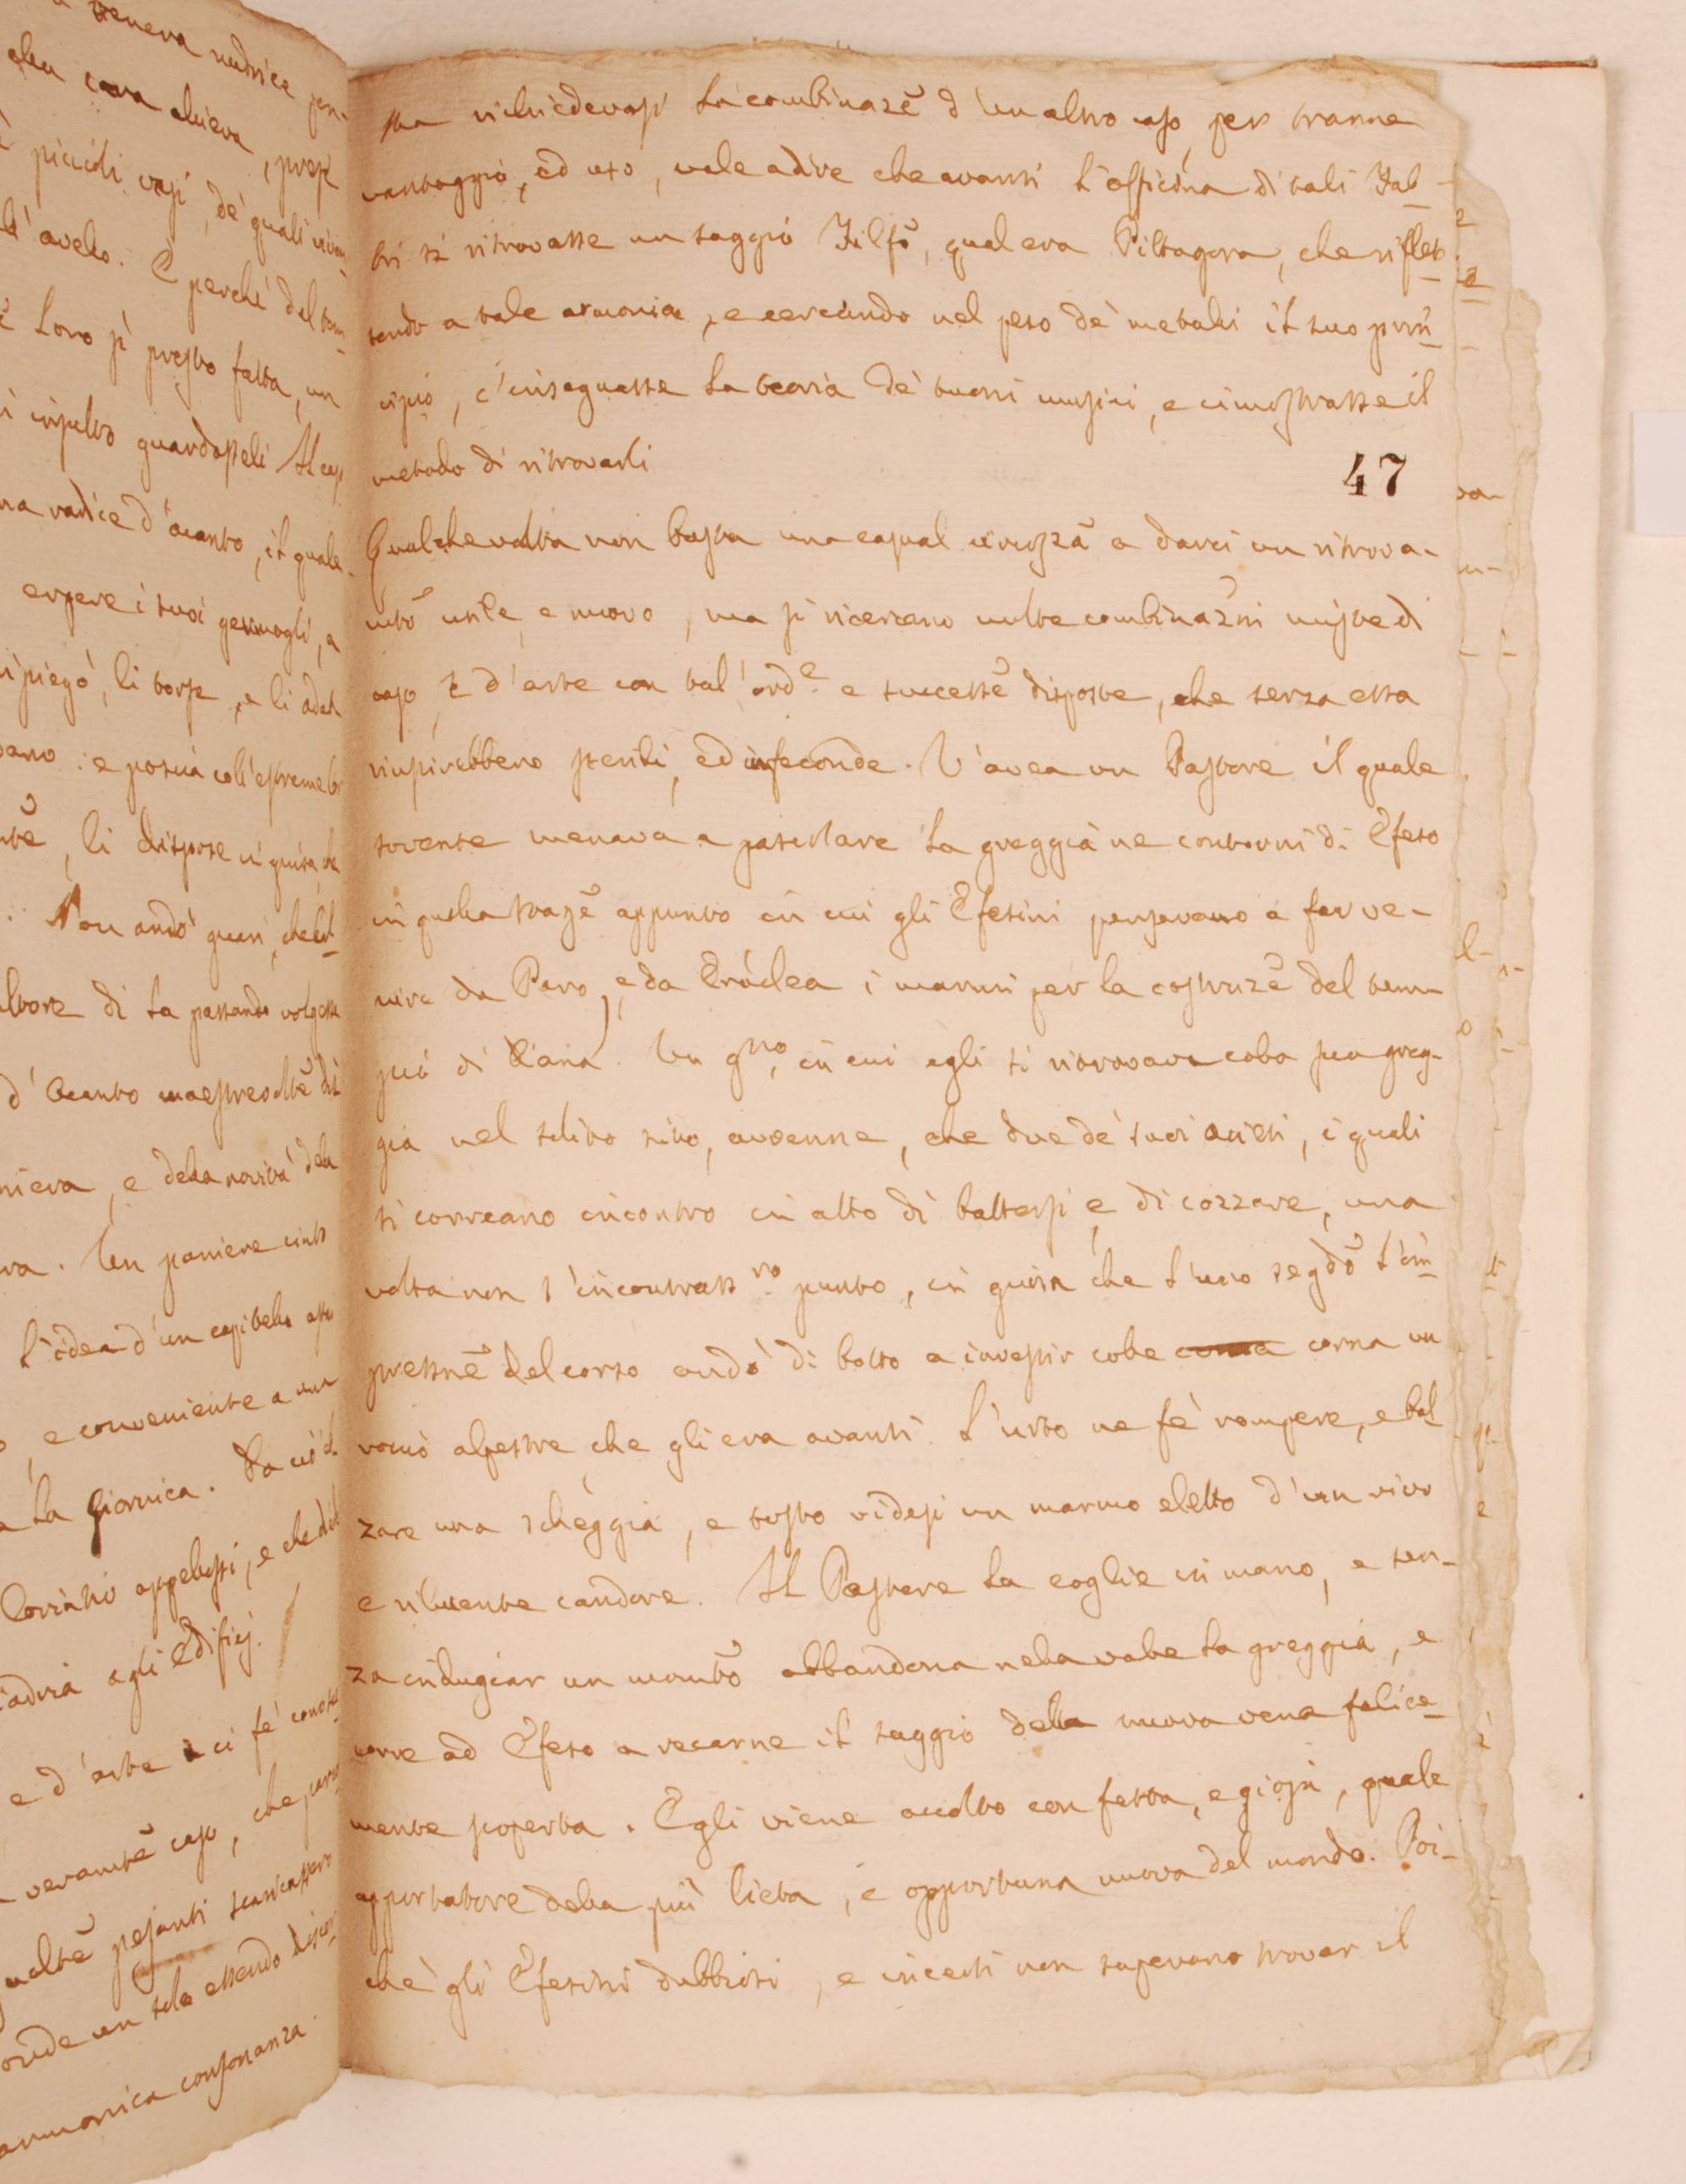 teneva nudrice per-
ella cara aliera, prese
piccioli vasi, de' quali viven
l'avello. E perchè dal tem-
Loro si presto fatta, un
impulso guardasseli Il cap
na radice d'acanto, il quale
ergere i suoi germogli, a
ripiegò, li torse, e li adat
vano: e poscia coll'estreme
mtẽ, li dispose in guisa, che
Non andò guari, che
ultore di la passando volgesse
d'acanto maestrevoltẽ di
niera, e della novità della
va. Un paniere cinto
l'idea d'un capitello
e conveniente a
la Gionica. Da ciò il
Corintio appellossi, e che di
iadria agli edificj.
e d'arte ci fe' conos
veramtẽ caso, che
ualtẽ pesanti scaricassero
onde un solo essendo discor
armonica consonanza.
Ma richiedevasi la combinazẽ d'un altro caso per trarne
vantaggio, ed uso, vale a dire che avanti l'officina di tali Fab-
bri si ritrovasse un saggio Filfõ, qual era Pittagora, che riflet-
tendo a tale armonia, e cercando nel peso de' metalli il suo prin-
cipio, c'insegnasse la teoria de' tuoni musici, e ci mostrasse il
metodo di ritrovarli
47
Qualche volta non basta una casual circoszã a darci un ritrova-
mtõ utile, e nuovo, ma si ricercano molte combinazñi miste di
caso, e d'arte con tal'ord.e e successẽ disposte, che senza essa
riuscirebbero sterili, ed infeconde. V'avea un Pastore il quale
sovente menava a pascolare la greggia ne contorni di Efeso
in quella stagẽ appunto in cui gli Efesini pensavano a far ve-
nire da Paro, e da Eraclea i marmi per la costruzẽ del tem-
pio di Diana. Un g.no, in cui egli si ritrovava colla sua greg-
gia nel solito sito, avvenne, che due de' suoi arieti, i quali
si correano incontro in atto di battersi e di cozzare, una
volta non s'incontrass.ro punto, in guisa che l'uno segdõ l'im-
pressnẽ del corso andò di botto a investir colle ~~corna~~ corna un
roccio alpestre che gli era avanti. L'urto ne fe' rompere, e bal-
zare una scheggia, e tosto videsi un marmo eletto d'un vivo
e rilucente candore. Il Pastore la coglie in mano, e sen-
za indugiar un momtõ abbandona nella valle la greggia, e
corre ad Efeso a recarne il saggio della nuova vena felice-
mente scoperta. Egli viene accolto con festa, e gioja, quale
apportatore della più lieta, e opportuna nuova del mondo. Poi-
chè gli Efesini dubbiosi, e incerti non sapevano trovar il